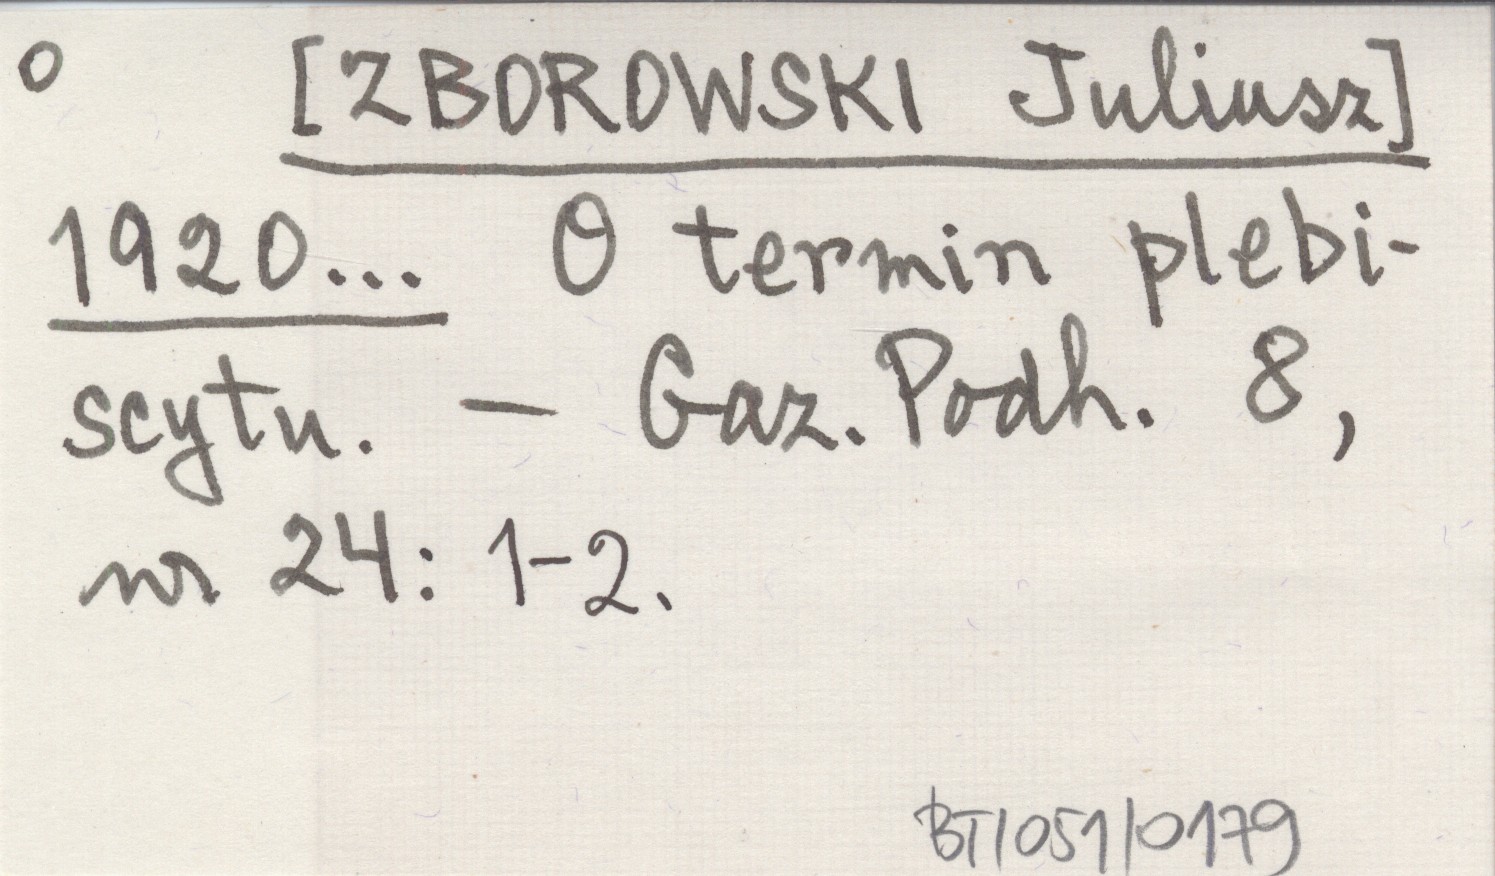 o [ZBOROWSKI Juliusz]
1920... O termin plebi-
scytu. — Gaz. Podh. 8,
nr 24: 1-2.
BT/051/0179